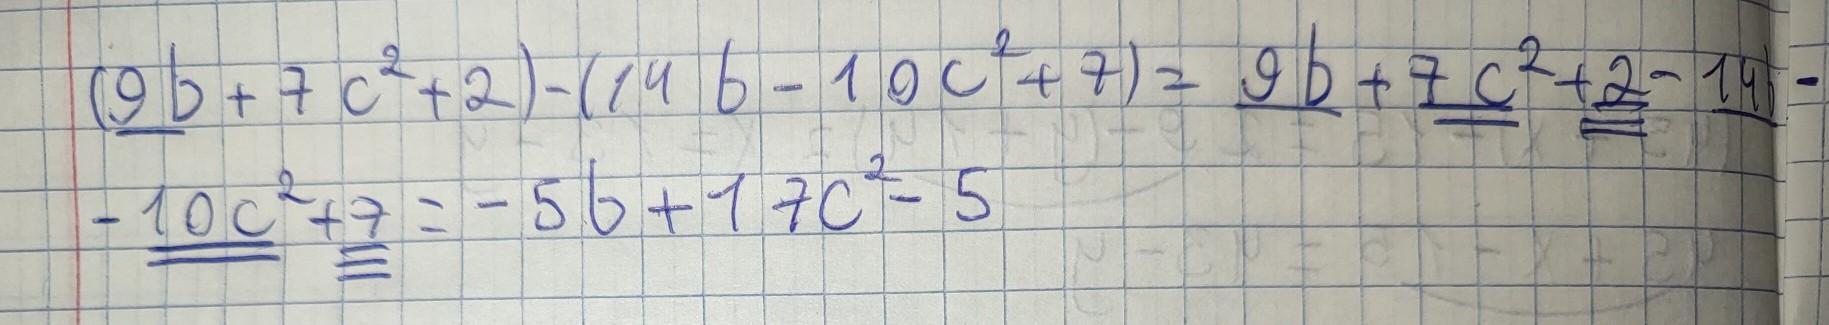 (9b + 7c²+2)-(14b - 10c²+7) = 9b + 7c²+2 - 14b -
- 10c²+7 = -5b + 17c² - 5